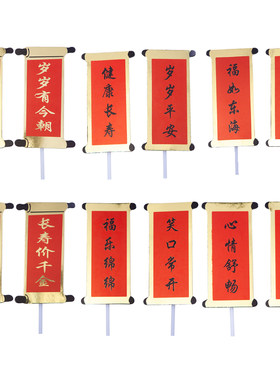 岁岁有今朝
健康长寿
岁岁平安
福如东海
长寿价千金
福乐绵绵
笑口常开
心情舒畅